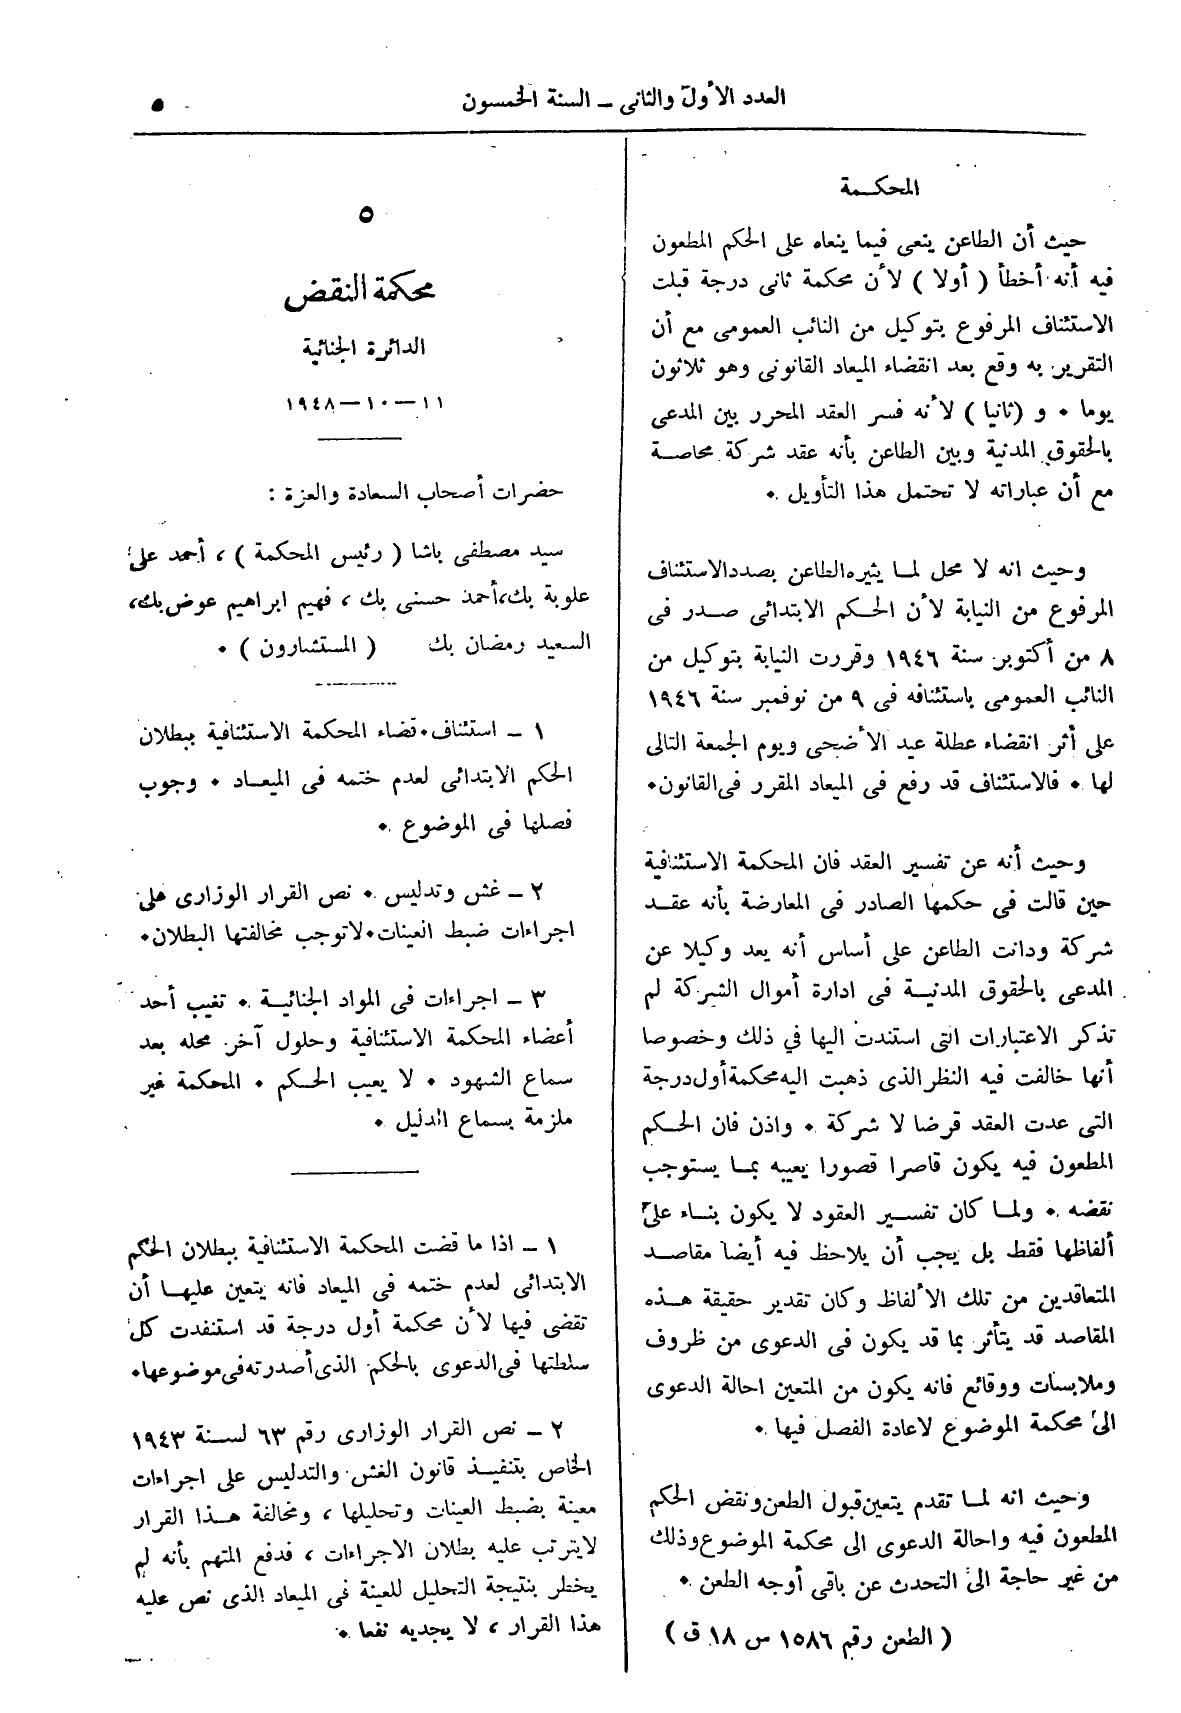 العدد الأول والثانى – السنة الخمسون
٥
المحكمة
حيث أن الطاعن ينعى فيما ينعاه على الحكم المطعون
فيه أنه أخطأ ( أولا ) لأن محكمة ثانى درجة قبلت
الاستئناف المرفوع بتوكيل من النائب العمومى مع أن
التقرير به وقع بعد انقضاء الميعاد القانونى وهو ثلاثون
يوما ٠ و (ثانيا ) لأنه فسر العقد المحرر بين المدعى
بالحقوق المدنية وبين الطاعن بأنه عقد شركة محاصة
مع أن عباراته لا تحتمل هذا التأويل ٠
وحيث انه لا محل لما يثيره الطاعن بصدد الاستئناف
المرفوع من النيابة لأن الحكم الابتدائى صدر فى
٨ من أكتوبر سنة ١٩٤٦ وقررت النيابة بتوكيل من
النائب العمومى باستئنافه فى ٩ من نوفمبر سنة ١٩٤٦
على أثر انقضاء عطلة عيد الأضحى ويوم الجمعة التالى
لها ٠ فالاستئناف قد رفع فى الميعاد المقرر فى القانون٠
وحيث أنه عن تفسير العقد فان المحكمة الاستئنافية
حين قالت فى حكمها الصادر فى المعارضة بأنه عقد
شركة ودانت الطاعن على أساس أنه يعد وكيلا عن
المدعى بالحقوق المدنية فى ادارة أموال الشركة لم
تذكر الاعتبارات التى استندت اليها في ذلك وخصوصا
أنها خالفت فيه النظر الذى ذهبت اليه محكمة أول درجة
التى عدت العقد قرضا لا شركة ٠ واذن فان الحكم
المطعون فيه يكون قاصرا قصورا يعيبه بما يستوجب
نقضه ٠ ولما كان تفسير العقود لا يكون بناء على
ألفاظها فقط بل يجب أن يلاحظ فيه أيضا مقاصد
المتعاقدين من تلك الألفاظ وكان تقدير حقيقة هذه
المقاصد قد يتأثر بما قد يكون فى الدعوى من ظروف
وملابسات ووقائع فانه يكون من المتعين احالة الدعوى
الى محكمة الموضوع لاعادة الفصل فيها ٠
وحيث انه لما تقدم يتعين قبول الطعن ونقض الحكم
المطعون فيه واحالة الدعوى الى محكمة الموضوع وذلك
من غير حاجة الى التحدث عن باقى أوجه الطعن ٠
( الطعن رقم ١٥٨٦ س ١٨ ق )
٥
محكمة النقض
الدائرة الجنائية
١١–١٠–١٩٤٨
حضرات أصحاب السعادة والعزة :
سيد مصطفى باشا ( رئيس المحكمة ) ، أحمد على
علوبة بك، أحمد حسنى بك ، فهيم ابراهيم عوض بك،
السعيد رمضان بك ( المستشارون ) ٠
١ – استئناف ٠ قضاء المحكمة الاستئنافية ببطلان
الحكم الابتدائى لعدم ختمه فى الميعاد ٠ وجوب
فصلها فى الموضوع ٠
٢ – غش وتدليس ٠ نص القرار الوزارى على
اجراءات ضبط العينات ٠ لا توجب مخالفتها البطلان٠
٣ – اجراءات فى المواد الجنائية ٠ تغيب أحد
أعضاء المحكمة الاستئنافية وحلول آخر محله بعد
سماع الشهود ٠ لا يعيب الحكم ٠ المحكمة غير
ملزمة بسماع الدليل ٠
١ – اذا ما قضت المحكمة الاستئنافية ببطلان الحكم
الابتدائى لعدم ختمه فى الميعاد فانه يتعين عليها أن
تقضى فيها لأن محكمة أول درجة قد استنفدت كل
سلطتها فى الدعوى بالحكم الذى أصدرته فى موضوعها٠
٢ – نص القرار الوزارى رقم ٦٣ لسنة ١٩٤٣
الخاص بتنفيذ قانون الغش والتدليس على اجراءات
معينة بضبط العينات وتحليلها ، ومخالفة هذا القرار
لا يترتب عليه بطلان الاجراءات ، فدفع المتهم بأنه لم
يخطر بنتيجة التحليل للعينة فى الميعاد الذى نص عليه
هذا القرار ، لا يجديه نفعا ٠